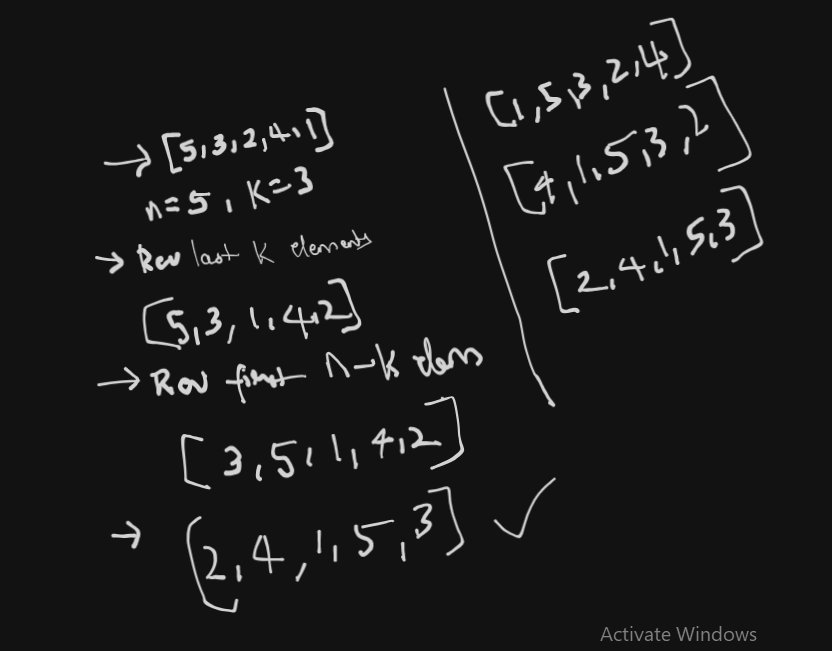 → [5,3,2,4,1]
n=5, K=3
→ Rev last K elements
[5,3,1,4,2]
→ Rev first n-K elems
[3,5,1,4,2]
→ [2,4,1,5,3] ✓
[1,5,3,2,4]
[4,1,5,3,2]
[2,4,1,5,3]
Activate Windows